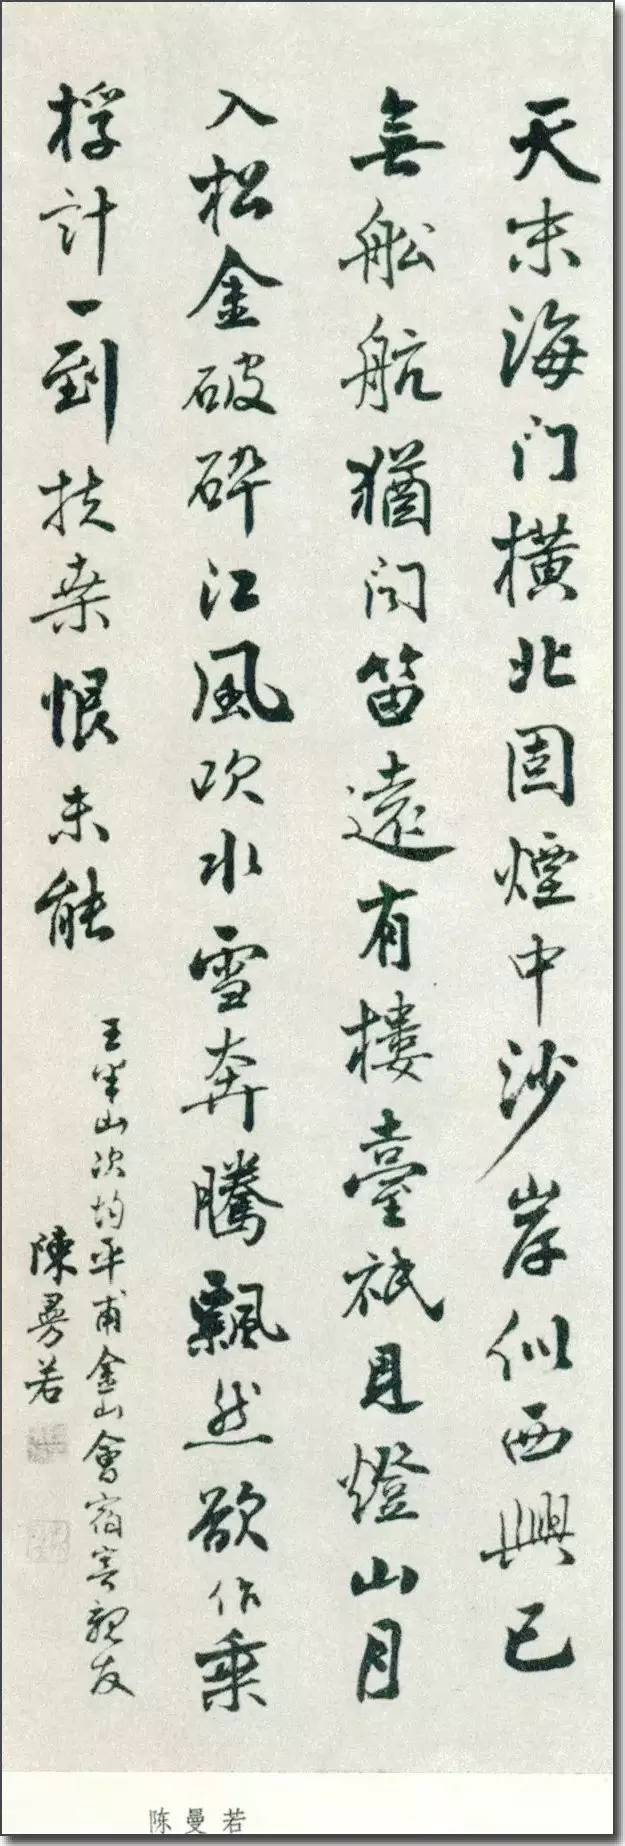 天末海门橫北固煙中沙岸似西興已
無舩航猶闻笛遠有樓臺祇見燈山月
入松金破碎江風吹水雪奔騰飄然欲作乘
桴計一到扶桒恨未能
王半山次均平甫金山會宿寄親友
陳曼若
陈曼若